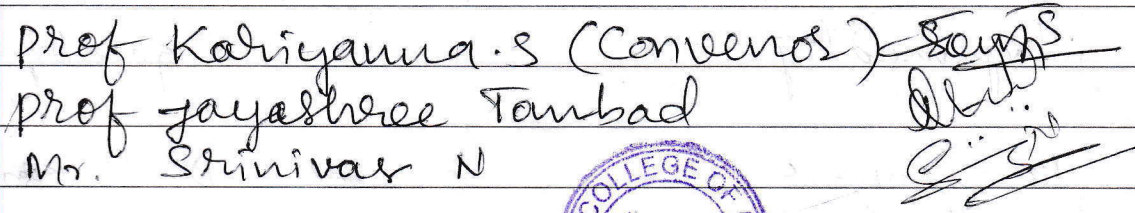 Prof Kariyanna.S (Convenor)
Prof Jayashree Tambad
Mr. Srinivas N
COLLEGE OF